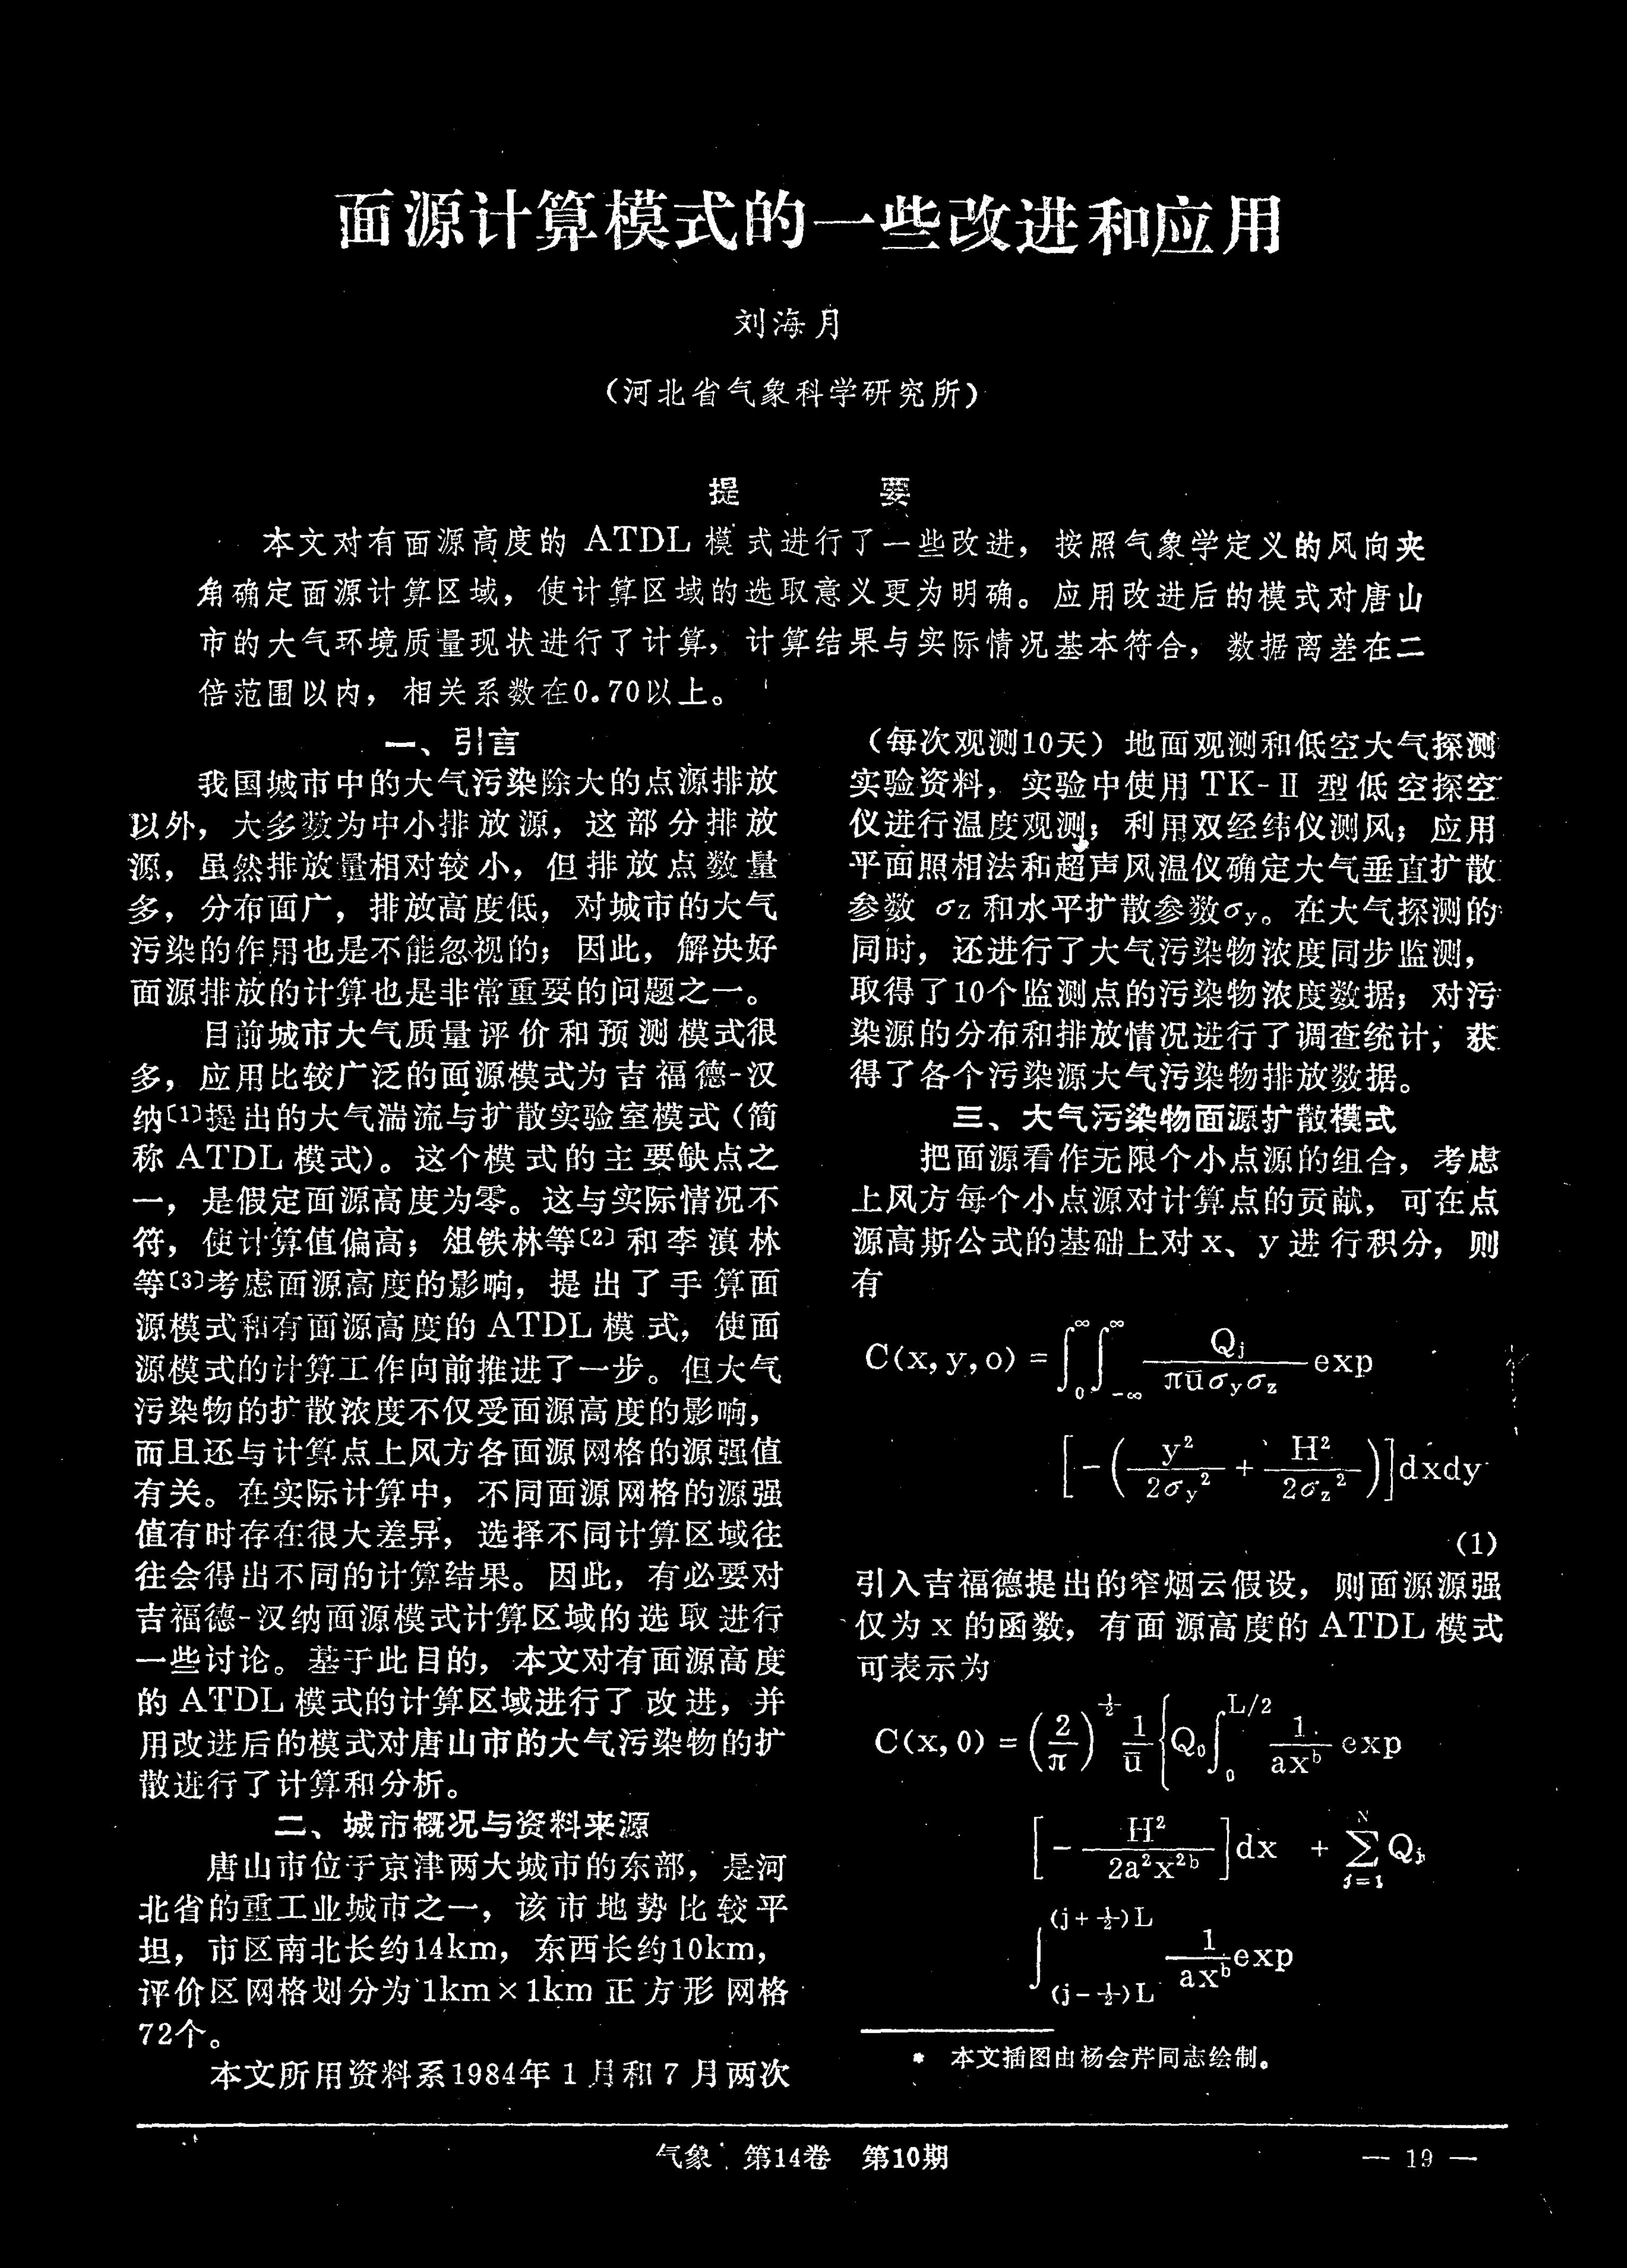 面源计算模式的一些改进和应用
刘海月
（河北省气象科学研究所）
提 要
本文对有面源高度的 ATDL 模式进行了一些改进，按照气象学定义的风向夹
角确定面源计算区域，使计算区域的选取意义更为明确。应用改进后的模式对唐山
市的大气环境质量现状进行了计算，计算结果与实际情况基本符合，数据离差在二
倍范围以内，相关系数在0.70以上。
一、引言
我国城市中的大气污染除大的点源排放
以外，大多数为中小排放源，这部分排放
源，虽然排放量相对较小，但排放点数量
多，分布面广，排放高度低，对城市的大气
污染的作用也是不能忽视的；因此，解决好
面源排放的计算也是非常重要的问题之一。
目前城市大气质量评价和预测模式很
多，应用比较广泛的面源模式为吉福德-汉
纳〔1〕提出的大气湍流与扩散实验室模式（简
称 ATDL 模式）。这个模式的主要缺点之
一，是假定面源高度为零。这与实际情况不
符，使计算值偏高；俎铁林等〔2〕和李滇林
等〔3〕考虑面源高度的影响，提出了手算面
源模式和有面源高度的 ATDL 模式，使面
源模式的计算工作向前推进了一步。但大气
污染物的扩散浓度不仅受面源高度的影响，
而且还与计算点上风方各面源网格的源强值
有关。在实际计算中，不同面源网格的源强
值有时存在很大差异，选择不同计算区域往
往会得出不同的计算结果。因此，有必要对
吉福德-汉纳面源模式计算区域的选取进行
一些讨论。基于此目的，本文对有面源高度
的 ATDL 模式的计算区域进行了改进，并
用改进后的模式对唐山市的大气污染物的扩
散进行了计算和分析。
二、城市概况与资料来源
唐山市位于京津两大城市的东部，是河
北省的重工业城市之一，该市地势比较平
坦，市区南北长约14km，东西长约10km，
评价区网格划分为1km×1km 正方形网格
72个。
本文所用资料系1984年1月和7月两次
（每次观测10天）地面观测和低空大气探测
实验资料，实验中使用 TK-Ⅱ 型低空探空
仪进行温度观测；利用双经纬仪测风；应用
平面照相法和超声风温仪确定大气垂直扩散
参数 σz 和水平扩散参数σy。在大气探测的
同时，还进行了大气污染物浓度同步监测，
取得了10个监测点的污染物浓度数据；对污
染源的分布和排放情况进行了调查统计，获
得了各个污染源大气污染物排放数据。
三、大气污染物面源扩散模式
把面源看作无限个小点源的组合，考虑
上风方每个小点源对计算点的贡献，可在点
源高斯公式的基础上对 x、y 进行积分，则
有
C(x,y,o) = ∫₀^∞ ∫₋∞^∞ Qj/(πūσyσz) exp
[-(y²/2σy² + H²/2σz²)]dxdy
(1)
引入吉福德提出的窄烟云假设，则面源源强
仅为 x 的函数，有面源高度的 ATDL 模式
可表示为
C(x,0) = (2/π)^½ 1/ū {Q₀∫₀^L/2 1/ax^b exp
[-H²/2a²x^2b]dx + Σ(j=1, N) Qj
∫_(j-½)L^(j+½)L 1/ax^b exp
* 本文插图由杨会芹同志绘制。
气象 第14卷 第10期
— 19 —